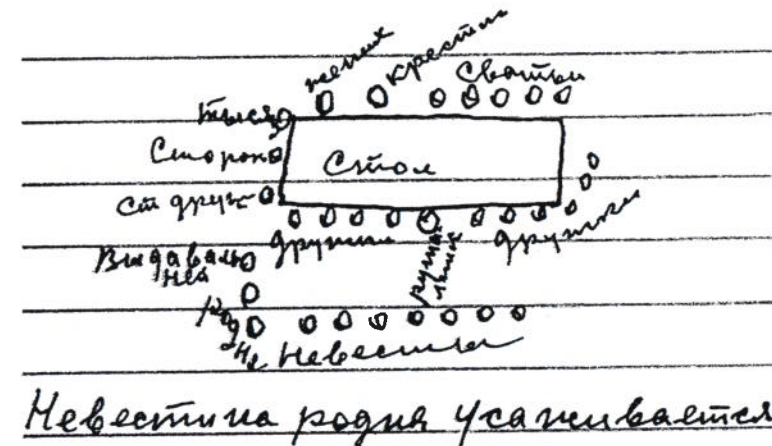 жених
крестн
Сватьи
тысяц
Сторон
Стол
ст друж
дружки
дружки
Выдаваль
ная
Родне Невесты
Невестина родня усаживается